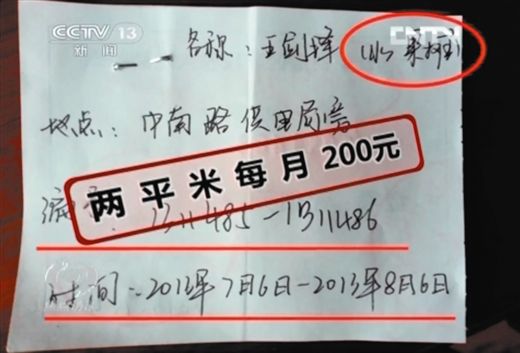 CCTV 13
新闻
名称：王剑锋（水果摊）
地点：中南路供电局旁
两平米每月200元
1311485－1311486
时间：2013年7月6日－2013年8月6日